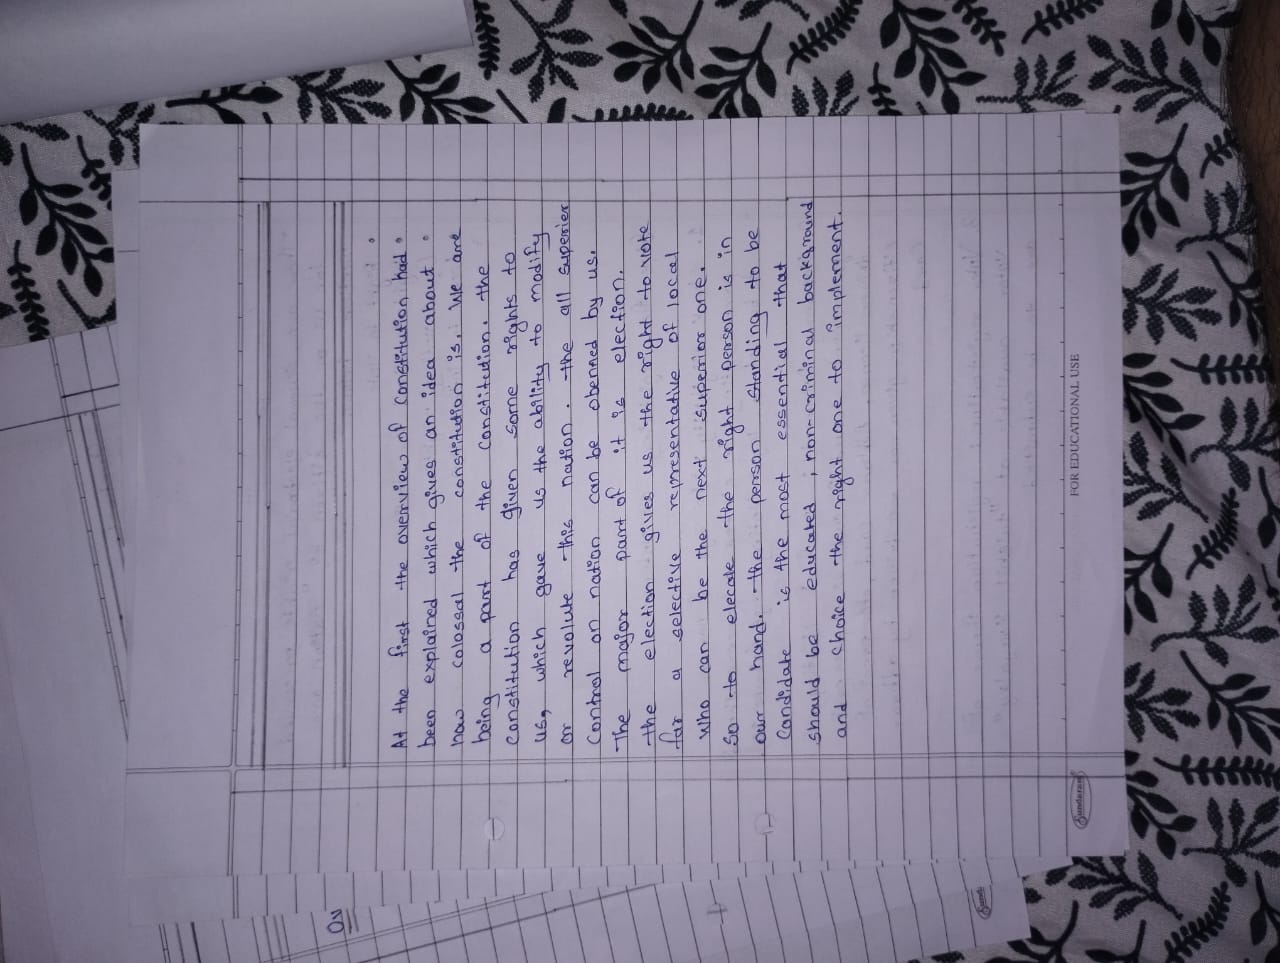 Ov
At the first the overview of constitution had
been explained which gives an idea about
how colossal the constitution is. We are
being a part of the constitution. the
constitution has given some rights to
us, which gave us the ability to modify
or revolute this nation. the all superier
control on nation can be obenned by us.
The major part of it is election.
the election gives us the right to vote
for a selective representative of local
who can be the next superior one.
So to elecate the right person is in
our hand. the person standing to be
Candidate is the most essential that
should be educated, non-criminal background
and choice the right one to implement.
Sundaram
FOR EDUCATIONAL USE